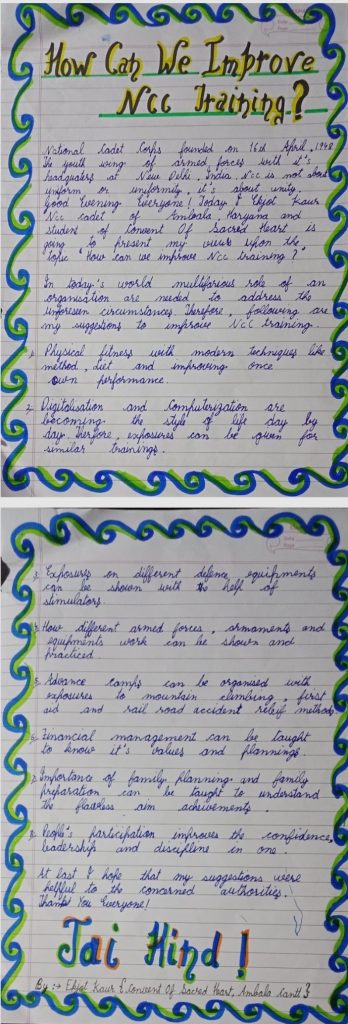 How Can We Improve
Ncc Training?
National Cadet Corps founded on 16th April, 1948
The youth wing of armed forces with it's
headquaters at New Delhi, India. Ncc is not about
uniform or uniformity, it's about unity.
Good Evening Everyone! Today I Ekjot Kaur
Ncc cadet of Ambala, Haryana and
student of Convent Of Sacred Heart is
going to present my views upon the
topic "How can we improve Ncc training?"
In today's world multifarious role of an
organisation are needed to address the
unforseen circumstances. Therefore, following are
my suggestions to improve Ncc training.
1. Physical fitness with modern techniques like
method, diet and improving once
own performance.
2. Digitalisation and Computerization are
becoming the style of life day by
day. Therfore, exposures can be given for
similar trainings.
3. Exposures on different defence equipments
can be shown with the help of
stimulators.
4. How different armed forces, armaments and
equipments work can be shown and
practiced.
5. Advance camps can be organised with
exposures to mountain climbing, first
aid and rail road accident releif methods
6. Financial management can be taught
to know it's values and plannings.
7. Importance of family planning and family
preparation can be taught to understand
the flawless aim acheivements
8. People's participation improves the confidence,
leadership and discipline in one.
At last I hope that my suggestions were
helpful to the concerned authorities.
Thank You Everyone!
Jai Hind!
By :-> Ekjot Kaur { Convent Of Sacred Heart, Ambala Cantt }